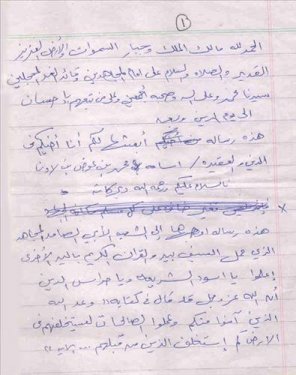 ١
الحمد لله مالك الملك وجبار السموات والأرض العزيز
القدير والصلاة والسلام على امام المجاهدين قائد الغر المحجلين
سيدنا محمد وعلى اله وصحبه اجمعين ومن تبعهم باحسان
الى يوم الدين وبعد
هذه رساله أبعثها لكم أنا أخيكم في
الدين والعقيده / اسامه محمد بن عوض بن لادن
فالسلام عليكم ورحمة الله وبركاته
x
هذه رساله اوجهها إلى الشعب الأبي الصامد المجاهد
الذي حمل السيف بيد والقران الكريم باليد الأخرى
إعلموا يا اسود الشريعه ويا حراس الدين
أن الله عز وجل قد قال في كتابه " وعد الله
الذين آمنوا منكم وعملوا الصالحات ليستخلفنهم في
الارض كما إستخلف الذين من قبلهم